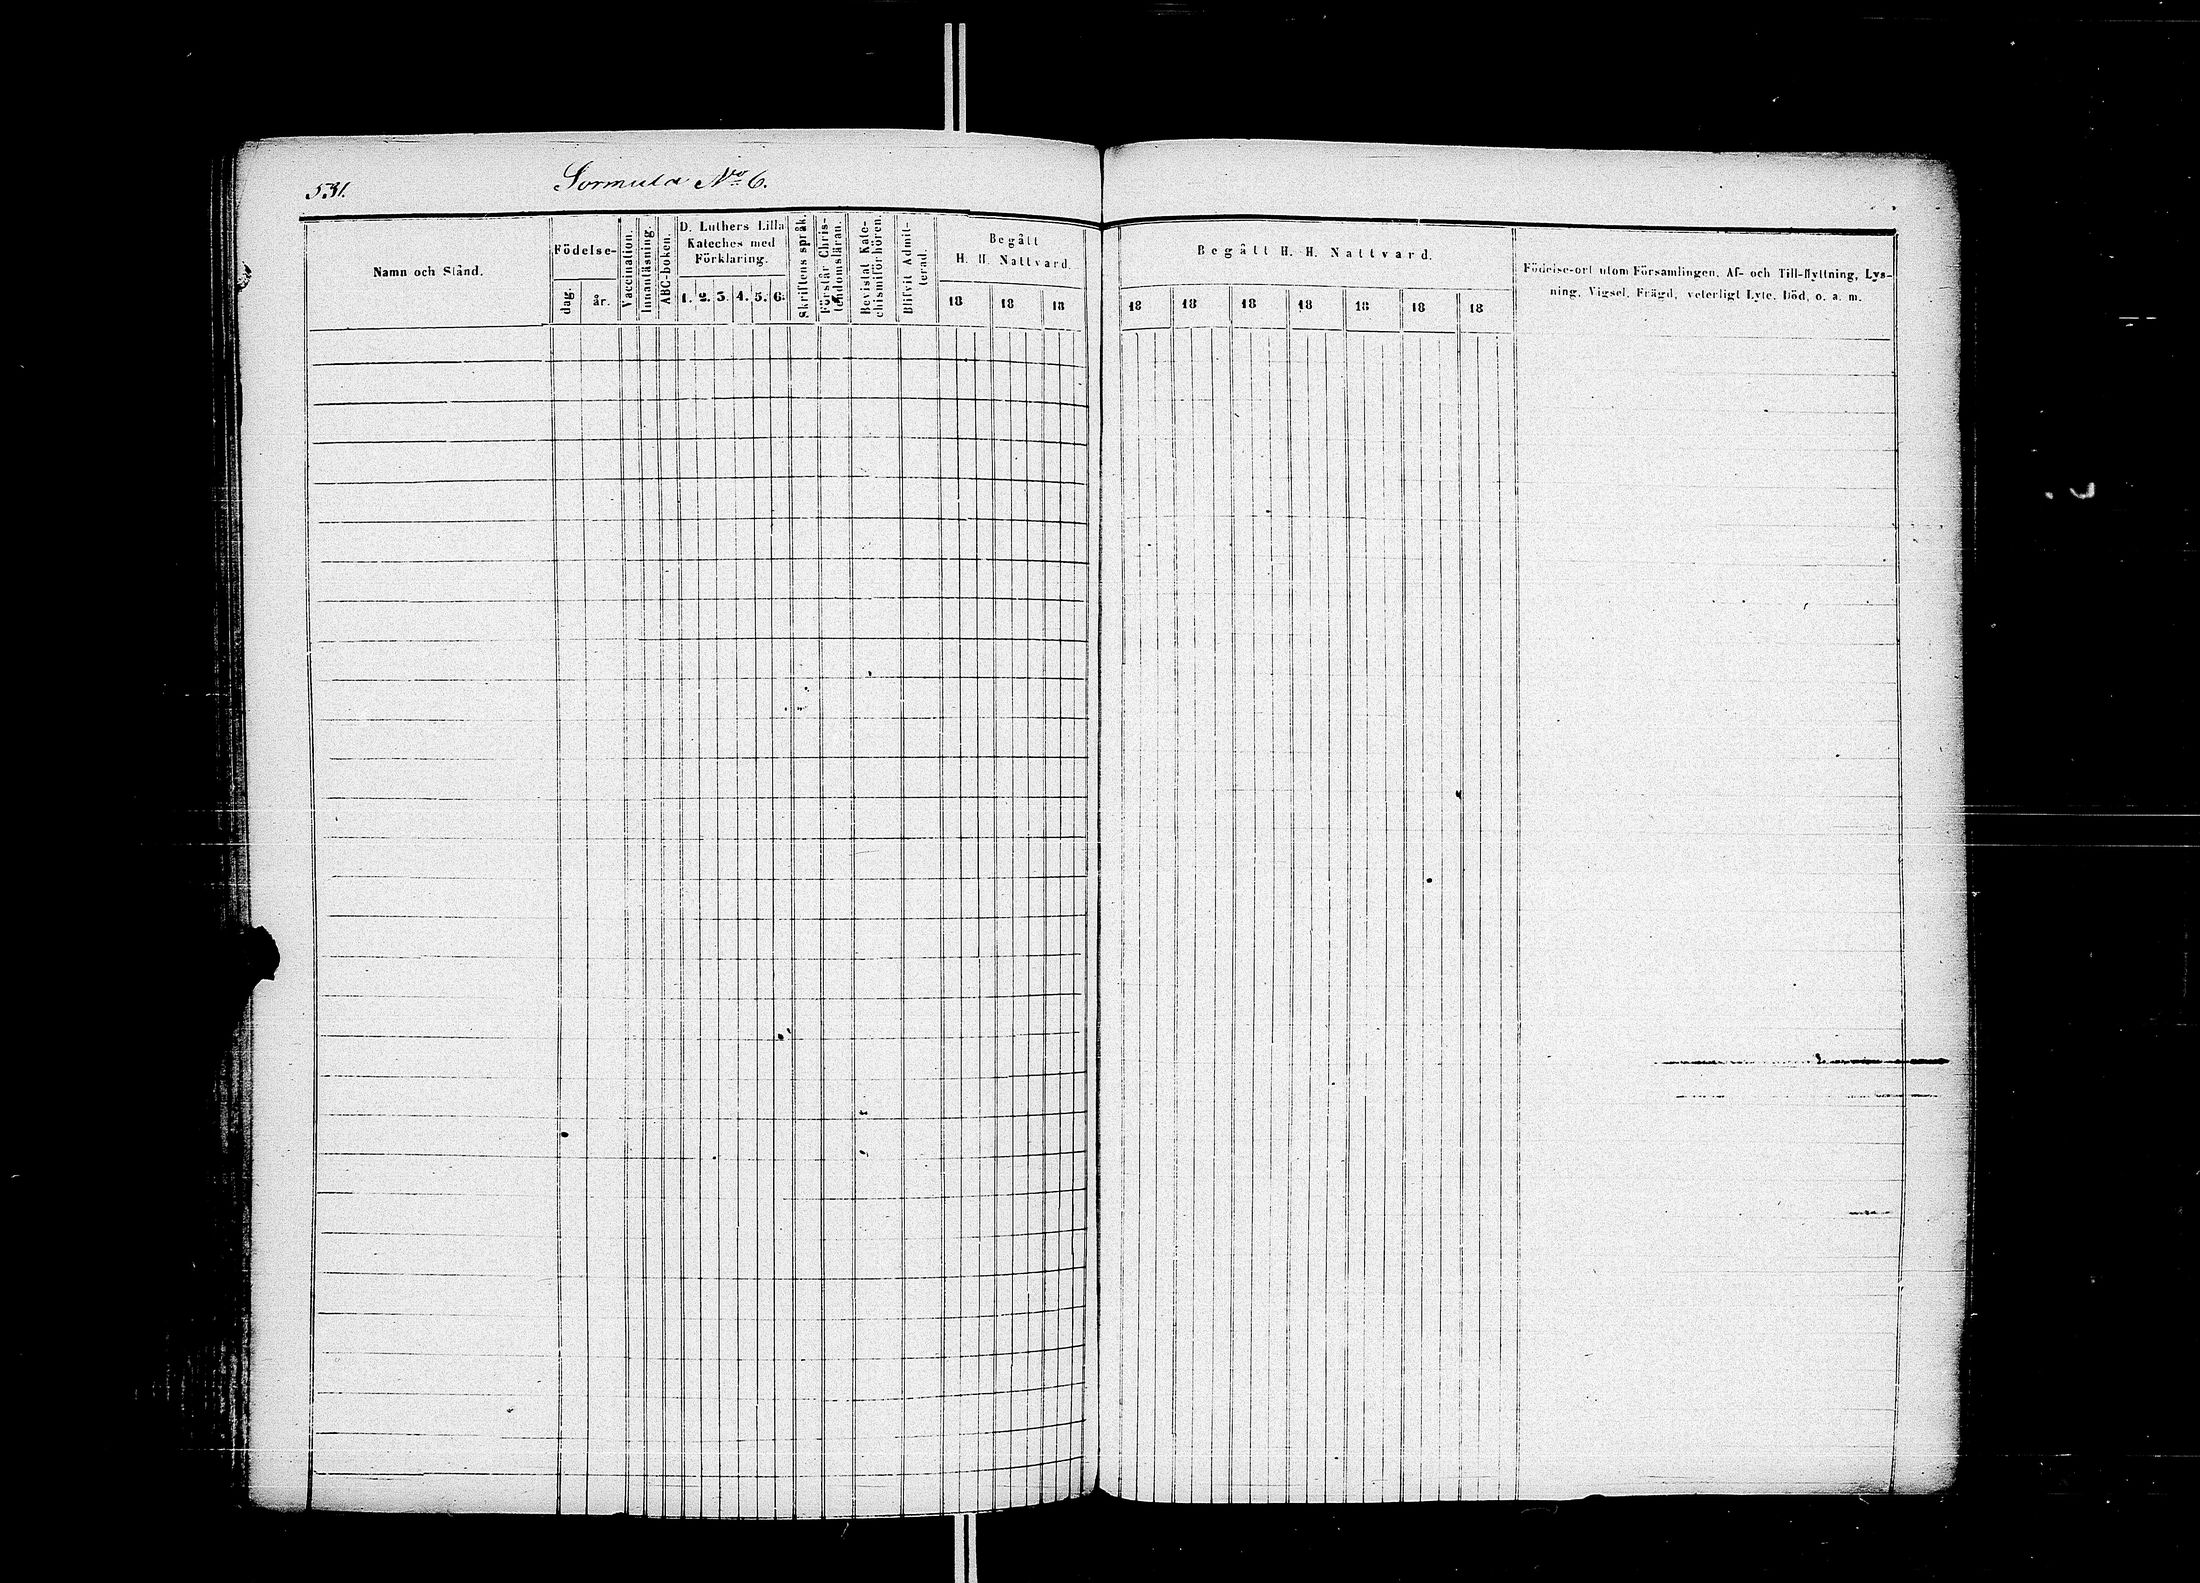 531.
Sormula No 6.
Namn och Stånd.
Födelse-
dag.
år.
Vaccination.
Innanläsning.
ABC-boken.
D. Luthers Lilla
Kateches med
Förklaring.
1. 2. 3. 4. 5. 6.
Skriftens språk.
Förstår Chris-
tendomsläran.
Bevistat Kate-
chismiförhören.
Blifvit Admit-
terad.
Begått
H. H. Nattvard.
18 18 18
Begått H. H. Nattvard.
18 18 18 18 18 18 18
Födelse-ort utom Församlingen, Af- och Till-flyttning, Lys-
ning, Vigsel, Frägd, veterligt Lyte, Död, o. a. m.